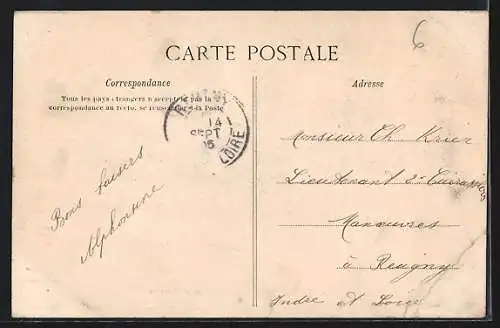 6
CARTE POSTALE
Correspondance
Tous les pays étrangers n'acceptent pas la
correspondance au recto, se renseigner à la Poste
14
SEPT
05
LOIRE
Bons baisers
Alphonsine
Adresse
Monsieur Ch Krier
Lieutenant 2e Cuirassiers
Manœuvres
à Reugny
Indre et Loire